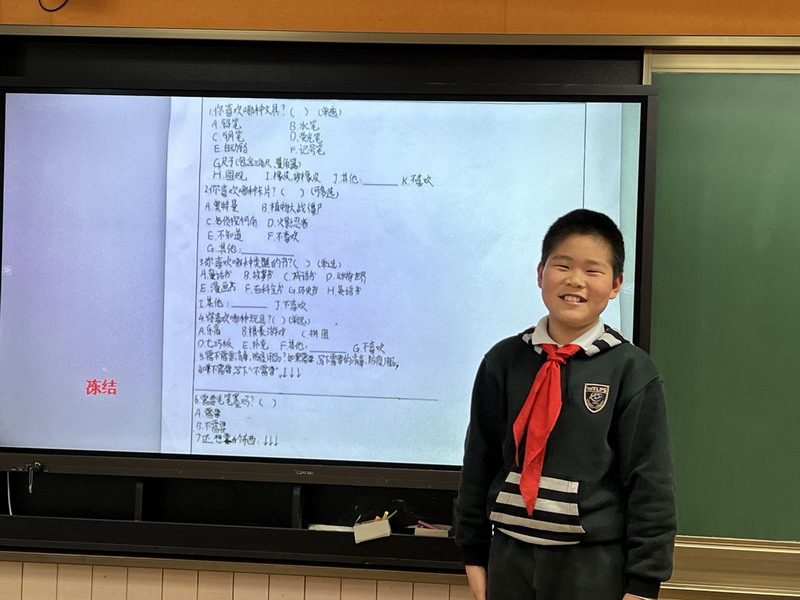 1.你喜欢哪种文具?( ) (单选)
A.铅笔 B.水笔
C.钢笔 D.荧光笔
E.自动铅 F.记号笔
G.尺子(包含三角尺、量角器)
H.圆规 I.橡皮、 J.其他:______ K.不喜欢
2.你喜欢哪种卡片?( ) (可多选)
A.奥特曼 B.植物大战僵尸
C.名侦探柯南 D.火影忍者
E.不知道 F.不喜欢
G.其他:______
3.你喜欢哪种类型的书?( ) (单选)
A.童话书 B.故事书 C.成语书 D.动物世界
E.漫画书 F.百科全书 G.历史书 H.英语书
I.其他:______ J.不喜欢
4.你喜欢哪种玩具?( ) (单选)
A.乐高 B.棋类游戏 C.拼图
D.七巧板 E.扑克 F.其他:______ G.不喜欢
5.需不需要消毒、防疫用品?如果需要,写下需要的消毒、防疫用品,
如果不需要,写下"不需要".↓↓↓
6.需要毛笔墨吗?( )
A.需要
B.不需要
7.还想要的东西:↓↓↓
冻结
WFLPS